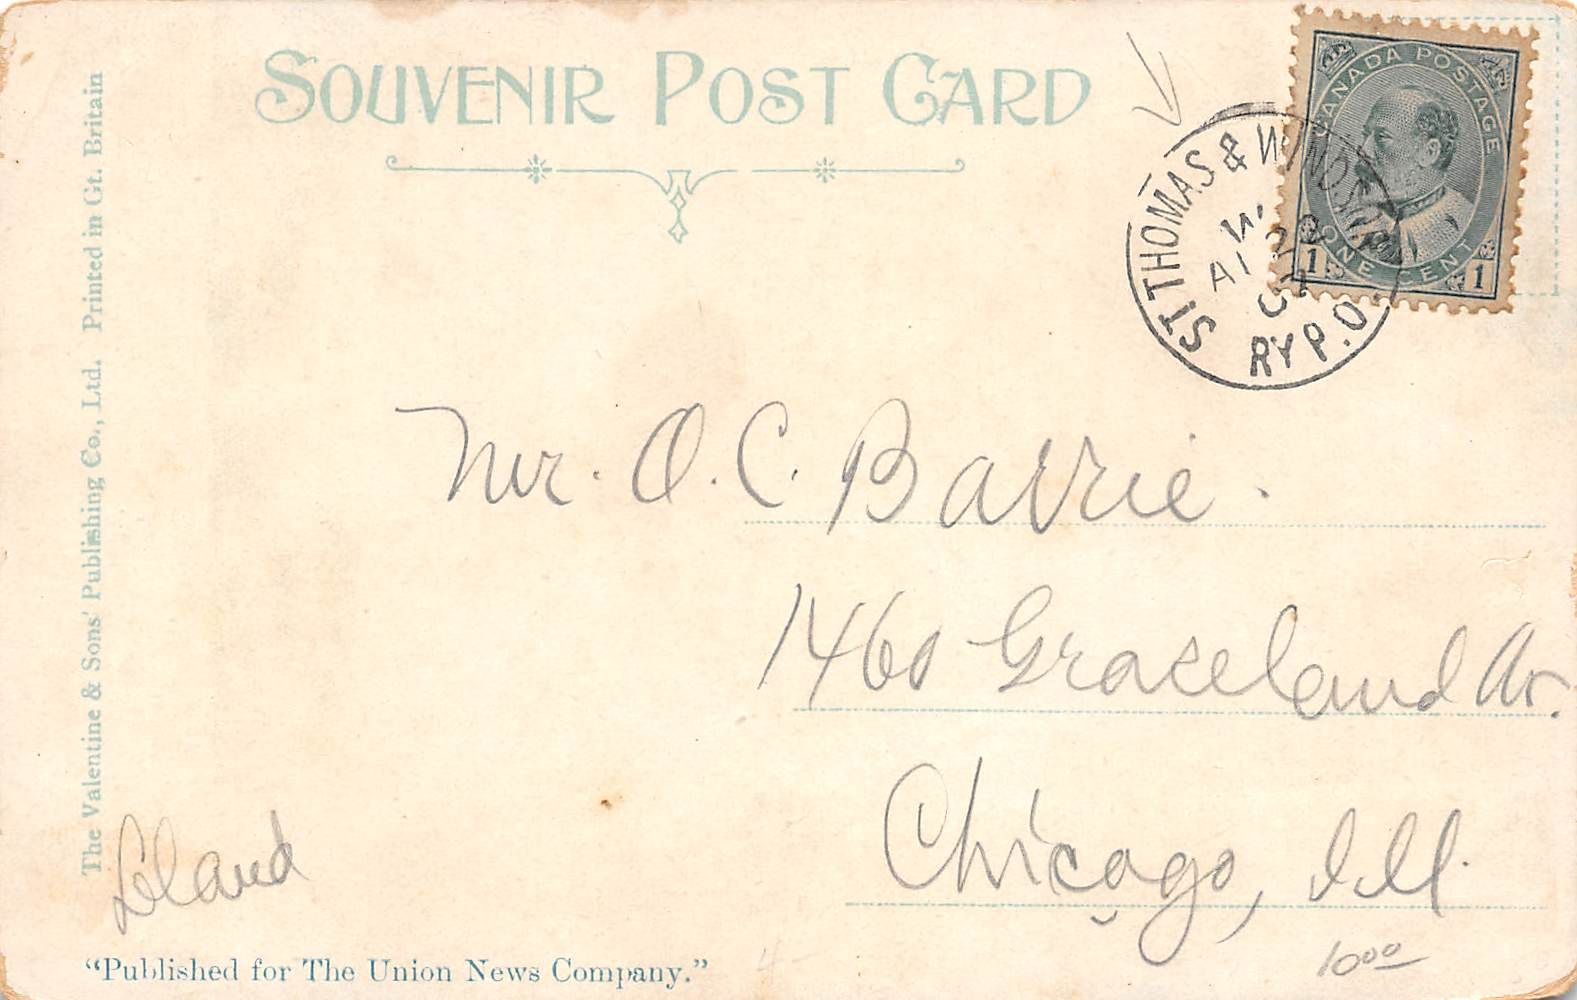 SOUVENIR POST CARD
The Valentine & Sons' Publishing Co., Ltd. Printed in Gt. Britain
CANADA POSTAGE
ONE CENT
1 1
ST THOMAS & WINDSOR
RY P.O.
Mr. O. C. Barrie.
1460 Graceland Av.
Chicago, Ill.
"Published for The Union News Company."
10⁰⁰